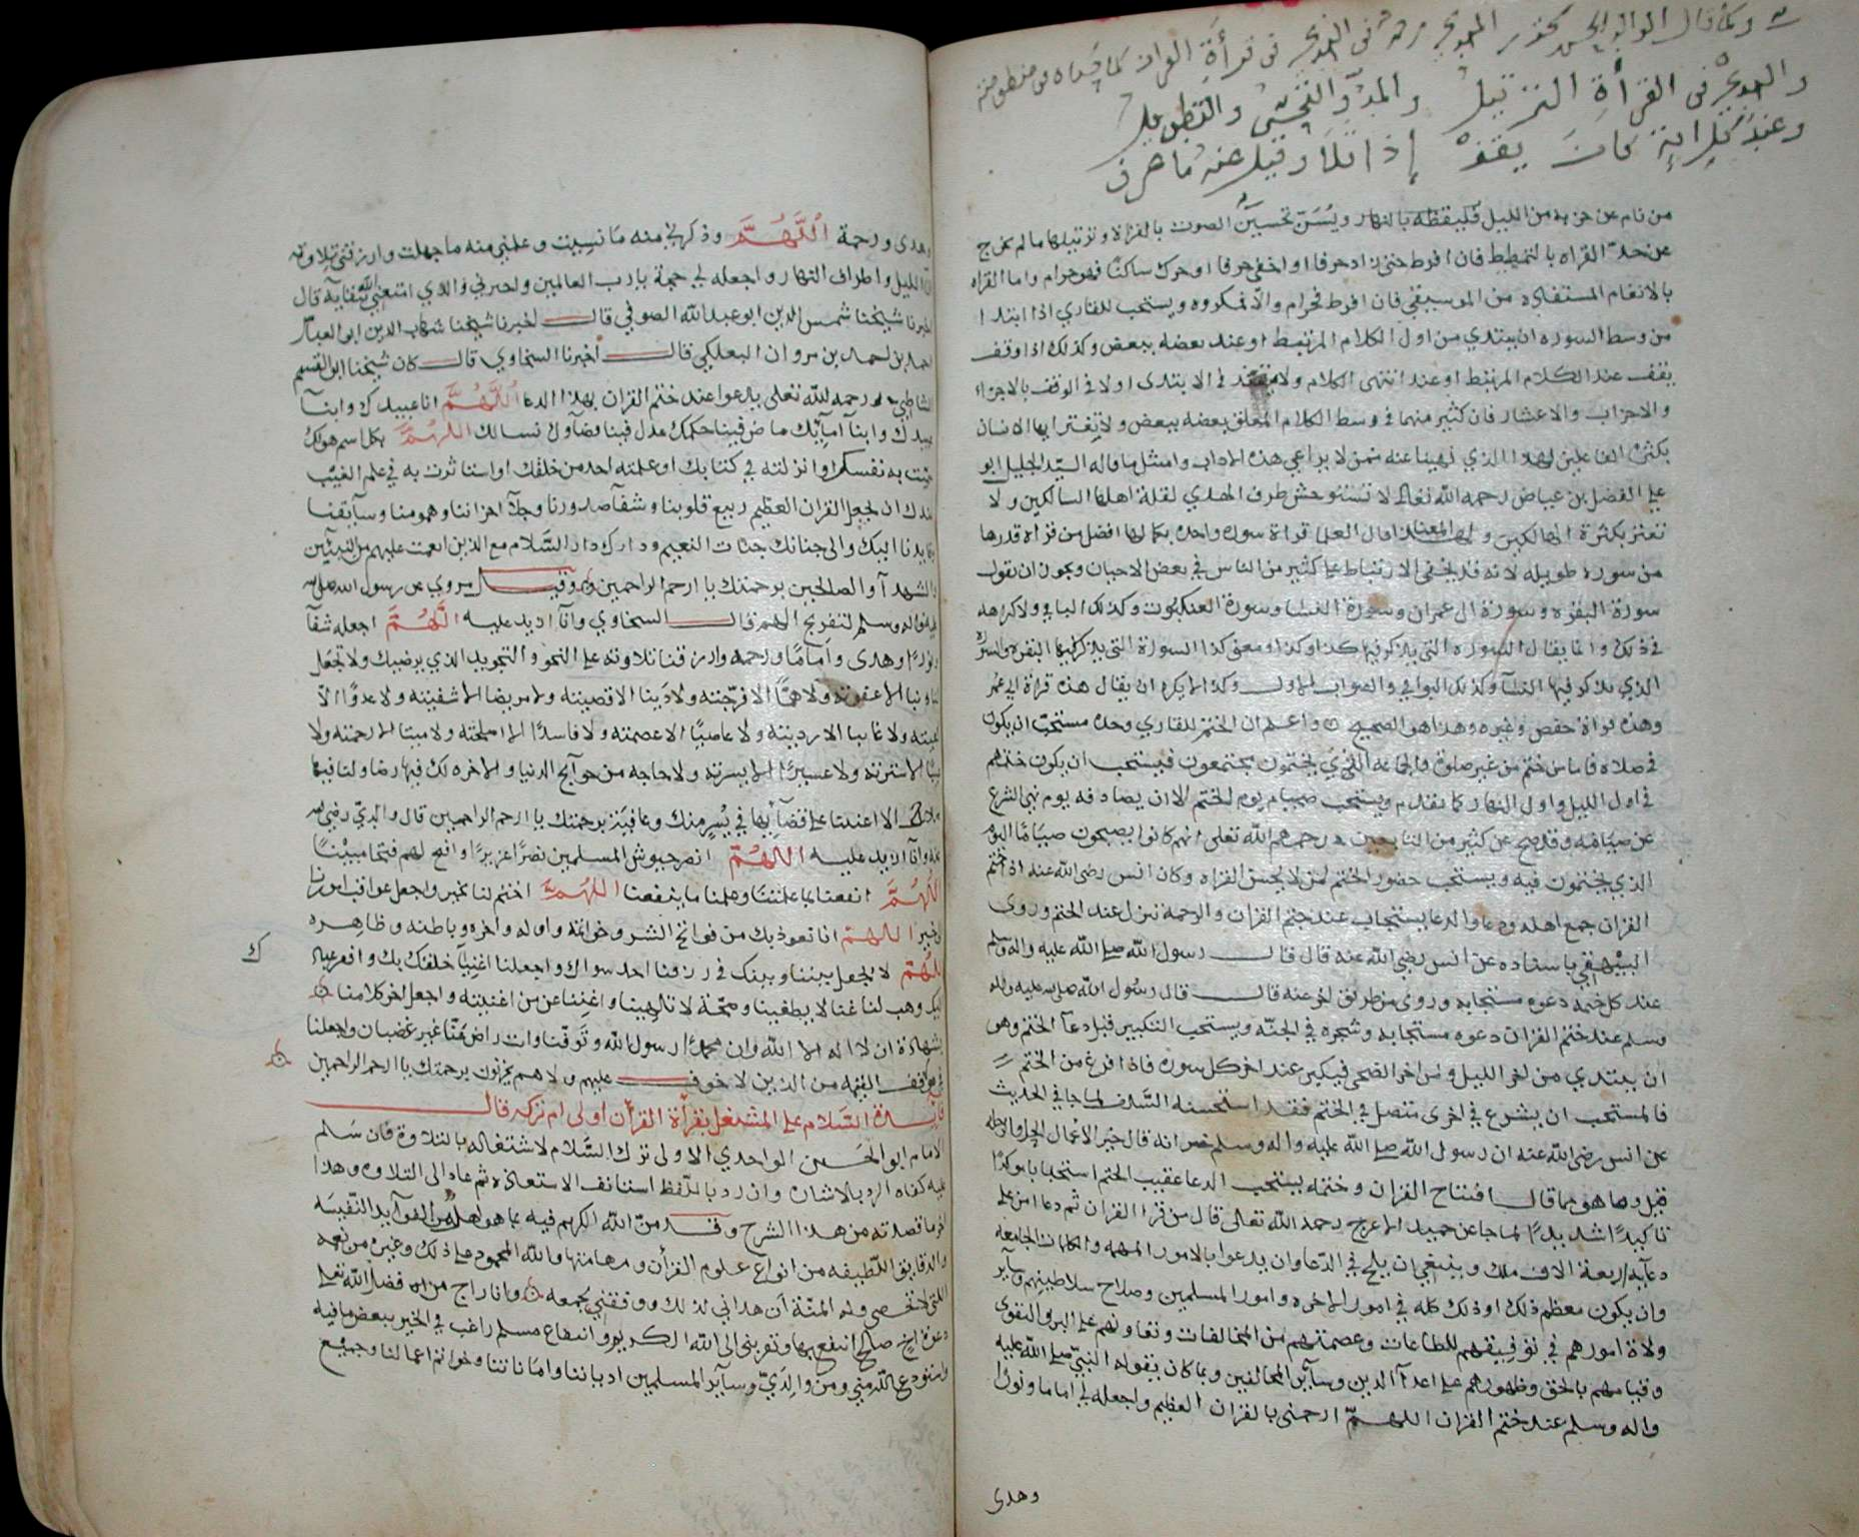 والمد والتحسين والتطويل
وعند كل اية كان يقف إذا تلا وقيل عنه ما حرف
من نام عن حزبه من الليل فليقظه بالنهار ويُسَنّ تحسين الصوت بالقراة وترتيلها ما لم يخرج
عن حد القراه بالتمطيط فان افرط حتى زاد حرفا او اخفى حرفا او حرك ساكنا فهو حرام واما القراه
بالانغام المستفاده من الموسيقى فان افرط فحرام والا فمكروه ويستحب للقاري اذا ابتدا
من وسط السوره ان يبتدي من اول الكلام المرتبط او عند بعضه ببعض وكذلك اذا وقف
يقف عند الكلام المرتبط او عند انتهى الكلام ولا يتقيد في الابتدى او لا في الوقف بالاجزاء
والاحزاب والاعشار فان كثير منهما في وسط الكلام المعلق بعضه ببعض ولا يغتر ايها الانسان
بكثرة الفاعلين لهذا الذي نهينا عنه ممن لا يراعي هذه الاداب وامتثل ما قاله السيد الجليل ابو
علي الفضل بن عياض رحمه الله تعالى لا تستوحش طرق الهدي لقلة اهلها السالكين ولا
تغتر بكثرة الهالكين ولهذا المعنى قال العلما قراة سوره واحده بكمالها افضل من قراه قدرها
من سوره طويله لانه قد يخفى الارتباط على كثير من الناس في بعض الاحيان ويجوز ان يقول
سورة البقره وسورة ال عمران وسورة النسا وسورة العنكبوت وكذلك الباقي ولا كراهه
في ذلك وانما يقال السوره التي يذكر فيها كذا وكذا ومعنى كذا السورة التي يذكر فيها البقره والسورة
الذي يذكر فيها النسآ وكذلك البواقي والصواب الاول وكذا لا يكره ان يقال هذه قراة ابي عمر
وهذه قراة حفص وغيره وهذا هو الصحيح واعلم ان الختم للقاري وحده مستحب ان يكون
في صلاه فاما من ختم من غير صلوة والجماعه الذي يختمون مجتمعون فيستحب ان يكون ختمهم
في اول الليل واول النهار كما تقدم ويستحب صيام يوم الختم الا ان يصادفه يوم نهى الشرع
عن صيامه وقد صح عن كثير من التابعين رحمهم الله تعلى انهم كانوا يصبحون صياما اليوم
الذي يختمون فيه ويستحب حضور الختم لمن لا يحسن القراه وكان انس رضى الله عنه اذا ختم
القران جمع اهله ودعا والدعا يستجاب عند ختم القران والرحمه تنزل عند الختم وروى
البيهقي باسناده عن انس رضي الله عنه قال قال رسول الله صلى الله عليه واله وسلم
عند كل ختمه دعوه مستجابه وروى من طريق اخر عنه قال قال رسول الله صلى الله عليه واله
وسلم عند ختم القران دعوه مستجابه وشجره في الجنه ويستحب التكبير قبل دعآ الختم وهو
ان يبتدي من اخر الليل ومن اخر الضحى فيكبر عند اخر كل سوره فاذا افرغ من الختم
فالمستحب ان يشرع في اخرى متصل في الختم فقد استحسنه السلف لما جا في الحديث
عن انس رضى الله عنه ان رسول الله صلى الله عليه واله وسلم انه قال خير الاعمال الحل والرحله
قيل وما هو بها قال افتتاح القران وختمه يستحب الدعا عقيب الختم استحبابا موكدا
تاكيدا شديدا لما جا عن حميد الاعرج رحمه الله تعالى قال من قرا القران ثم دعا امن على
دعآيه اربعة الاف ملك وينبغي ان يلح في الدعا وان يدعوا بالامور المهمه والكلمات الجامعه
وان يكون معظم ذلك او ذلك كله في امور الاخره وامور المسلمين وصلاح سلاطينهم وساير
ولاة امورهم في توفيقهم للطاعات وعصمتهم من المخالفات وتعاونهم على البر والتقوى
وقيامهم بالحق وظهورهم على اعدآ الدين وسآير المخالفين وبما كان يقوله النبي صلى الله عليه
واله وسلم عند ختم القران اللهم ارحمنى بالقران العظيم واجعله لي اماما ونورا
وهدى
وهدى ورحمة اللَّهُمَّ وذكرني منه ما نسيت وعلمني منه ما جهلت وارزقني تلاوته
الليل واطراف النهار واجعله لي حجة يا رب العالمين واخبرني والدي امتعني الله ببقايه قال
اخبرنا شيخنا شمس الدين ابو عبد الله الصوفي قال اخبرنا شيخنا شهاب الدين ابو العباس
احمد بن احمد بن مروان البعلبكي قال اخبرنا السخاوي قال كان شيخنا ابو القسم
الشاطبي رحمه الله تعلى يدعوا عند ختم القران بهذا الدعا اللَّهُمَّ انا عبيدك وابنآ
عبيدك وابنآ امآيك ماض فينا حكمك عدل فينا قضآوك نسالك اللهم بكل اسم هو لك
سميت به نفسك او انزلته في كتابك او علمته احد من خلقك او استاثرت به في علم الغيب
عندك ان تجعل القران العظيم ربيع قلوبنا وشفآ صدورنا وجلآ احزاننا وهمومنا وسآيقنا
وقايدنا اليك والى جنانك جنات النعيم ودارك دار السلام مع الذين انعمت عليهم من النبيين
والشهدآ والصالحين برحمتك يا ارحم الراحمين وقيل مروي عن رسول الله صلى الله
عليه واله وسلم لتفريج الهم قال السخاوي وانآ ازيد عليه اللَّهُمَّ اجعله شفآ
ونورا وهدى وامامًا ورحمه وارزقنا تلاوته على النحو والتجويد الذي يرضيك ولا تجعل
لنا ذنبا الا غفرته ولا همًّا الا فرّجته ولا دَينا الا قضيته ولا مريضا الا شفيته ولا عدوًّا الا
كفيته ولا غايبا الا رديته ولا عاصيًا الا عصمته ولا فاسدًا الا اصلحته ولا ميتا الا رحمته ولا
عيبًا الا سترته ولا عسيرًا الا يسرته ولا حاجه من حوآيج الدنيا والاخره لك فيها رضا ولنا فيها
صلاح الا اعنتنا على قضآيها في يُسرٍ منك وعافية برحمتك يا ارحم الراحمين قال والدي رضي الله
عنه وانآ ازيد عليه اللَّهُمَّ انصر جيوش المسلمين نصرًا عزيزًا وافتح لهم فتحا مبينًا
اللَّهُمَّ انفعنا بما علمتنا وعلمنا ما ينفعنا اللهم اختم لنا بخير واجعل عواقب امورنا
الى خير اللهم انا نعوذ بك من فواتح الشر وخواتمه واوله واخره وباطنه وظاهره
اللهم لا تجعل بيننا وبينك في رزقنا احد سواك واجعلنا اغنيآ خلقك بك وافقر عبادك
اليك وهب لنا غنا لا يطغينا وصحّة لا تلهينا واغننا عن من اغنيته واجعل اخر كلامنا
شهادة ان لا اله الا الله وان محمدًا رسول الله وتوفّنا وانت راض عنّا غير غضبان واجعلنا
في موقف القيمه من الذين لا خوف عليهم ولا هم يحزنون برحمتك يا ارحم الراحمين
فايدة السَّلام على المشتغل بقرأة القرأن اولى ام تركه قال
الامام ابو الحسين الواحدي الاولى ترك السَّلام لاشتغاله بالتلاوة فان سَلم
عليه كفاه الرد بالاشاره وان رد باللفظ استانف الاستعاذه ثم عاد الى التلاوه وهذا
اخر ما قصدته من هذا الشرح وقد منّ الله الكريم فيه بما هو اهله من الفوآيد النّفيسَه
والدقايق اللطيفه من انواع علوم القرأن ومهماتها والله المحمود على ذلك وغيره من نعمه
التي لا تحصى وله المنّة أن هداني لذلك ووفقني لجمعه وانا راج من فضل الله تعالى
دعوة اخ صالح انتفع بها وتقربنى الى الله الكريم وانتفاع مسلم راغب في الخير ببعض ما فيه
واستودع الله مني ومن والِديّ وسآير المسلمين ادياننا واماناتنا وخواتم اعمالنا وجميع